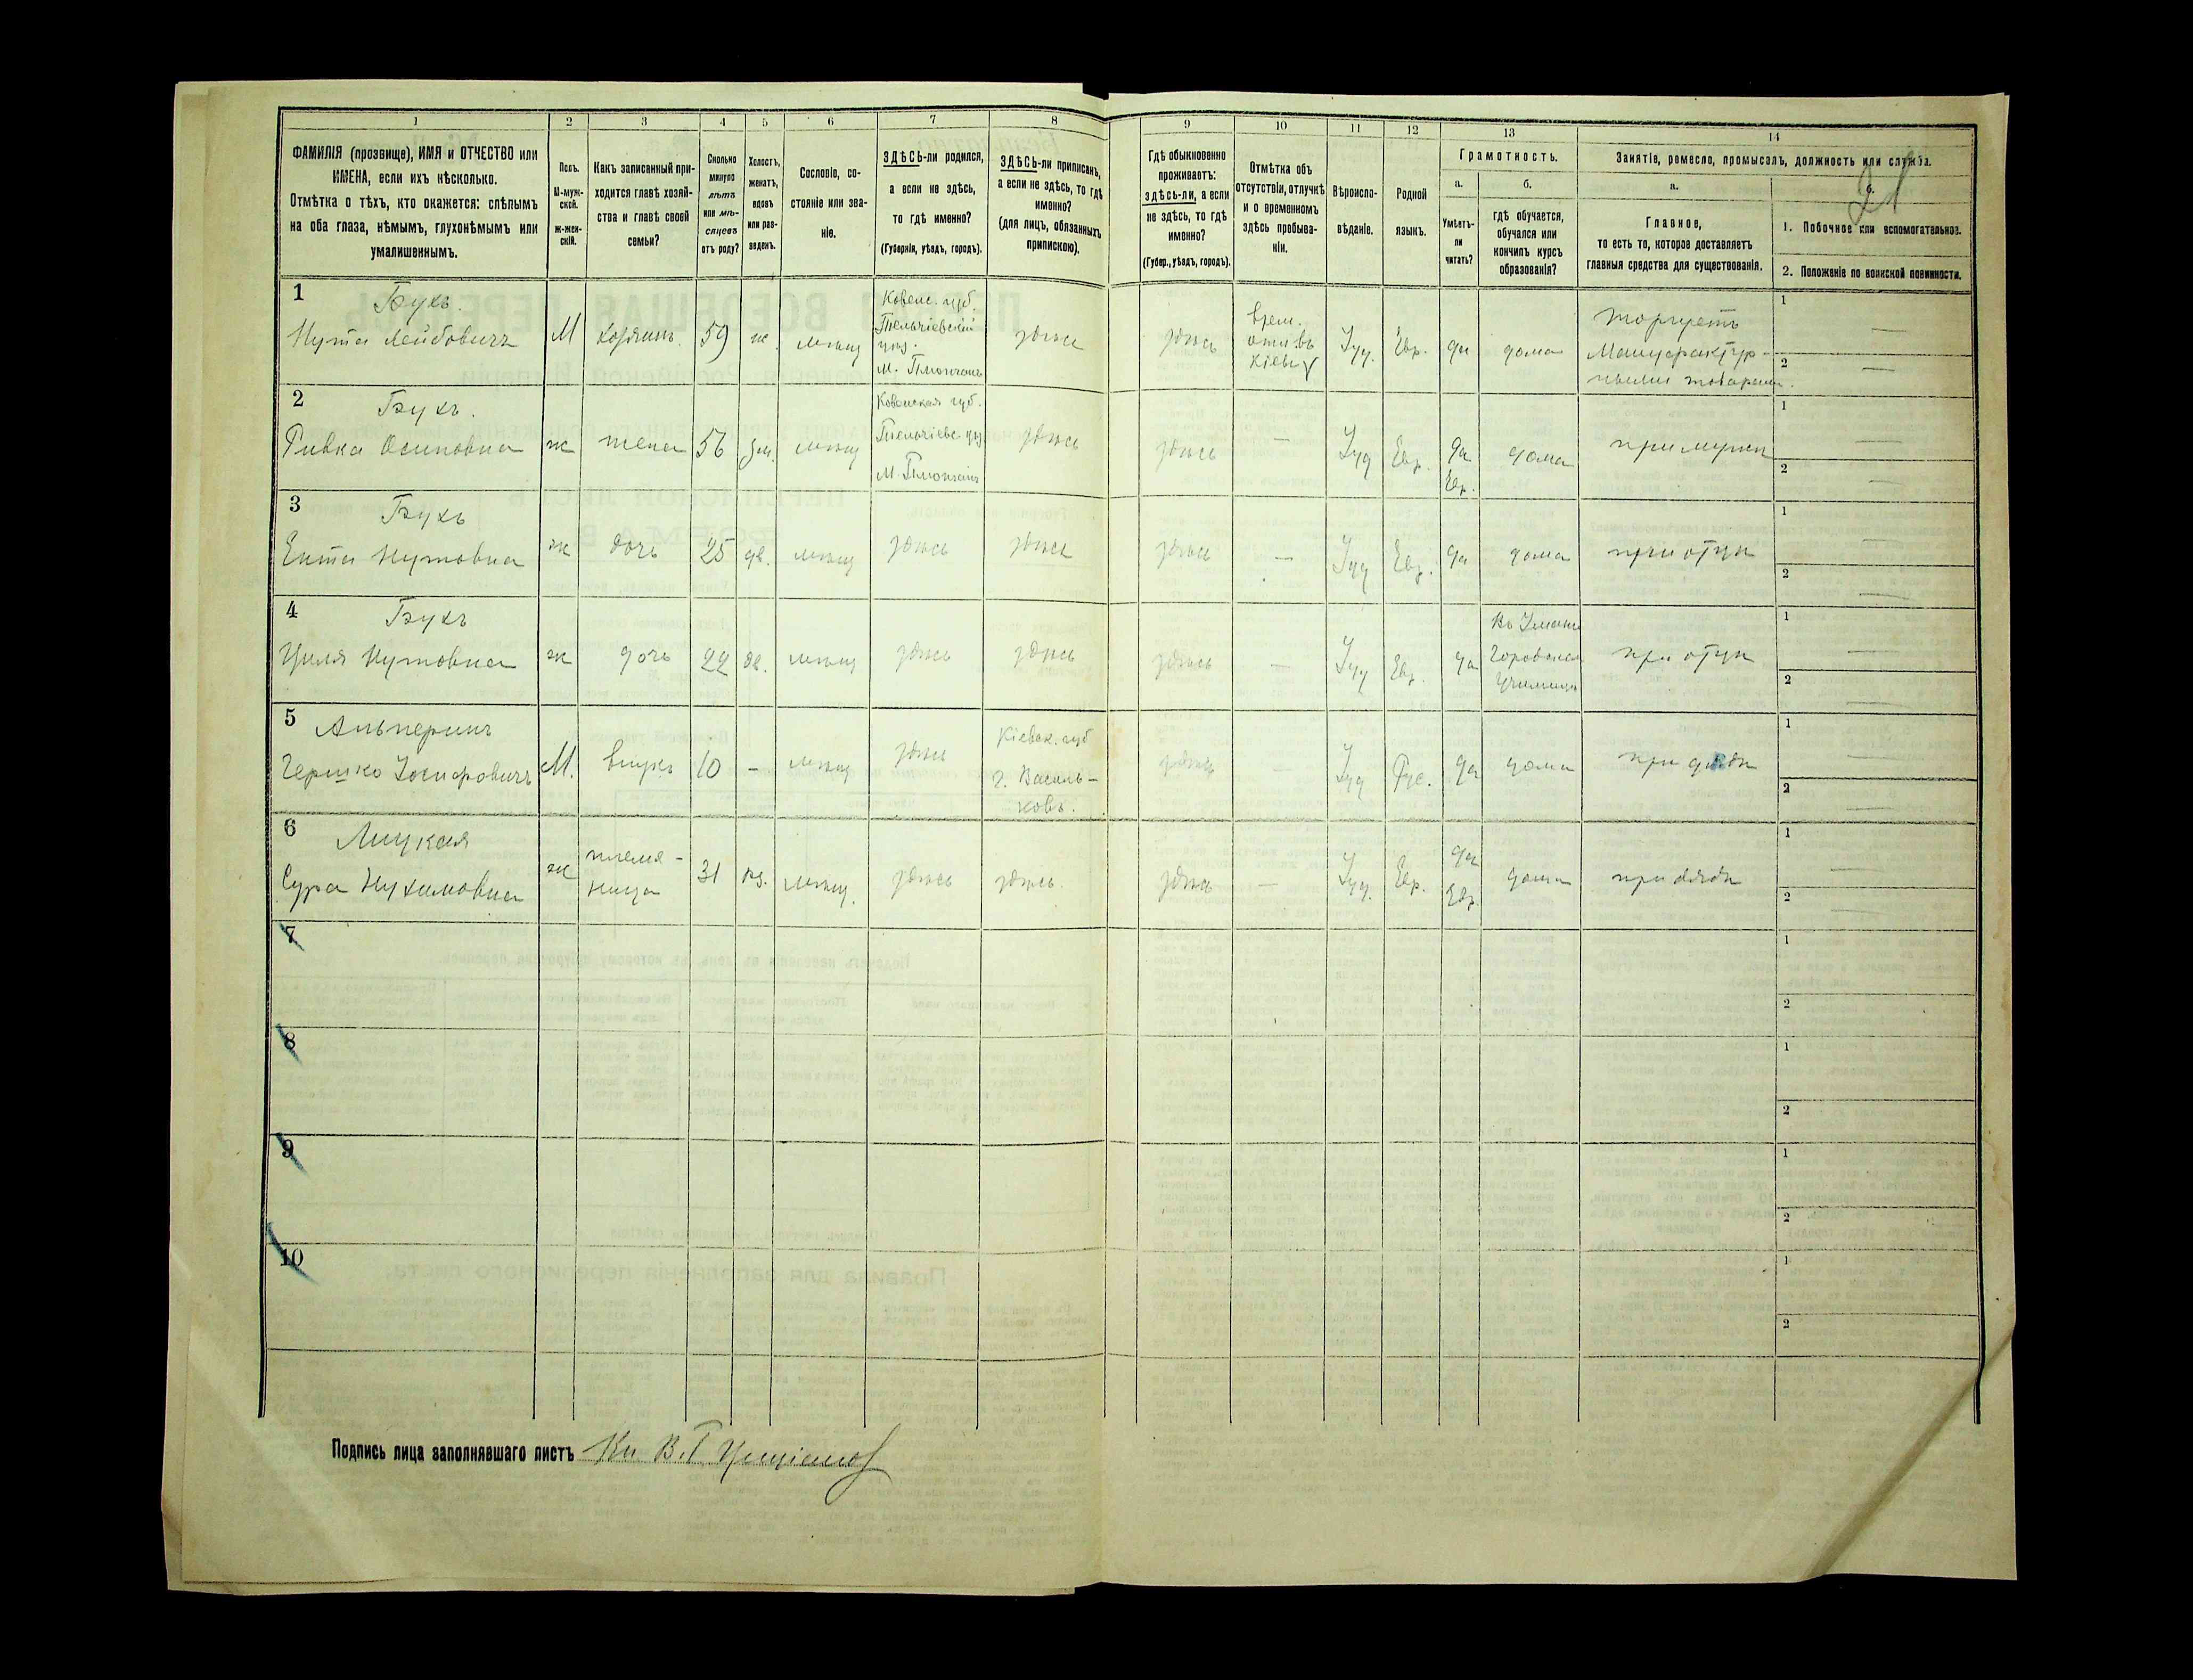 1 2 3 4 5 6 7 8 9 10 11 12 13 14
ФАМИЛІЯ (прозвище), ИМЯ и ОТЧЕСТВО или
ИМЕНА, если ихъ нѣсколько.
Отмѣтка о тѣхъ, кто окажется: слѣпымъ
на оба глаза, нѣмымъ, глухонѣмымъ или
умалишеннымъ.
Полъ.
М-муж-
ской.
ж-жен-
скій.
Какъ записанный при-
ходится главѣ хозяй-
ства и главѣ своей
семьи?
Сколько
минуло
лѣтъ
или мѣ-
сяцевъ
отъ роду?
Холостъ,
женатъ,
вдовъ
или раз-
веденъ.
Сословіе, со-
стояніе или зва-
ніе.
ЗДѢСЬ-ли родился,
а если не здѣсь,
то гдѣ именно?
(Губернія, уѣздъ, городъ).
ЗДѢСЬ-ли приписанъ,
а если не здѣсь, то гдѣ
именно?
(для лицъ, обязанныхъ
припискою).
Гдѣ обыкновенно
проживаетъ:
здѣсь-ли, а если
не здѣсь, то гдѣ
именно?
(Губер., уѣздъ, городъ).
Отмѣтка объ
отсутствіи, отлучкѣ
и о временномъ
здѣсь пребыва-
ніи.
Вѣроиспо-
вѣданіе.
Родной
языкъ.
Грамотность.
а.
Умѣетъ-
ли
читать?
б.
гдѣ обучается,
обучался или
кончилъ курсъ
образованія?
Занятіе, ремесло, промыселъ, должность или служба.
а.
Главное,
то есть то, которое доставляетъ
главныя средства для существованія.
б.
21
1. Побочное или вспомогательное.
2. Положеніе по воинской повинности.
1
Бухъ.
Нута Лейбовичъ
М
хозяинъ.
59
ж.
мѣщ
Ковенс. губ.
Тельшевскій
уѣз.
здѣсь
здѣсь
врем.
отл. въ
Кіевъ
Іуд.
Евр.
да
дома
торгуетъ
Мануфактур-
ными товарами.
1 —
2 —
2
Бухъ.
Ривка Осиповна
ж
жена
56
зм.
мѣщ
Ковенская губ.
здѣсь
здѣсь
—
Іуд
Евр.
да
Евр.
дома
при мужѣ
1 —
2
3
Бухъ
Ента Нутовна
ж
дочь
25
дѣ.
мѣщ
здѣсь
здѣсь
здѣсь
—
Іуд
Евр.
да
дома
при отцѣ
1 —
2 —
4
Бухъ
Циля Нутовна
ж
дочь
22
дѣ.
мѣщ
здѣсь
здѣсь
здѣсь
—
Іуд
Евр.
да
Въ Умани
при отцѣ
1 —
2 —
5
Альперинъ
Гершко Іосифовичъ
М.
внукъ
10
–
мѣщ
здѣсь
Кіевск. губ
г. Василь-
ковъ.
здѣсь
—
Іуд
Рус.
да
дома
при дѣдѣ
1 —
2 —
6
Лицкая
Сура Нухимовна
ж
племя-
ница
31
мѣщ.
здѣсь
здѣсь.
здѣсь
—
Іуд.
Евр.
да
Евр.
дома
при дядѣ
1 —
2 —
7
1
2
8
1
2
9
1
2
10
1
2
Подпись лица заполнявшаго листъ